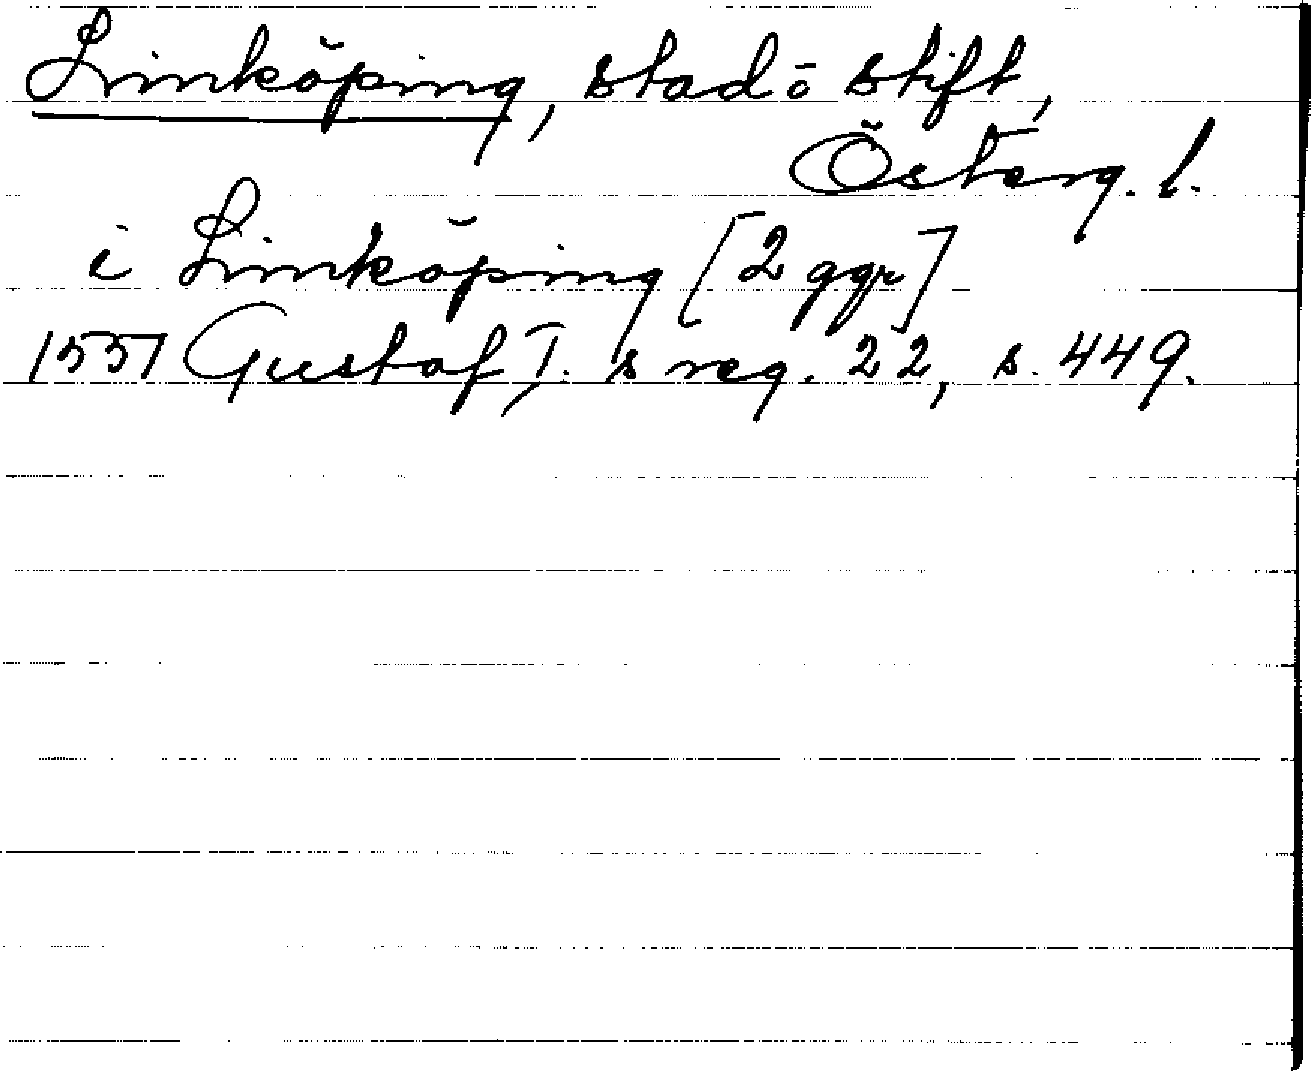 Linköping, stad o stift,
Österg. l.
i Linköping [2 ggr]
1551 Gustaf I. s reg. 22, s. 449.